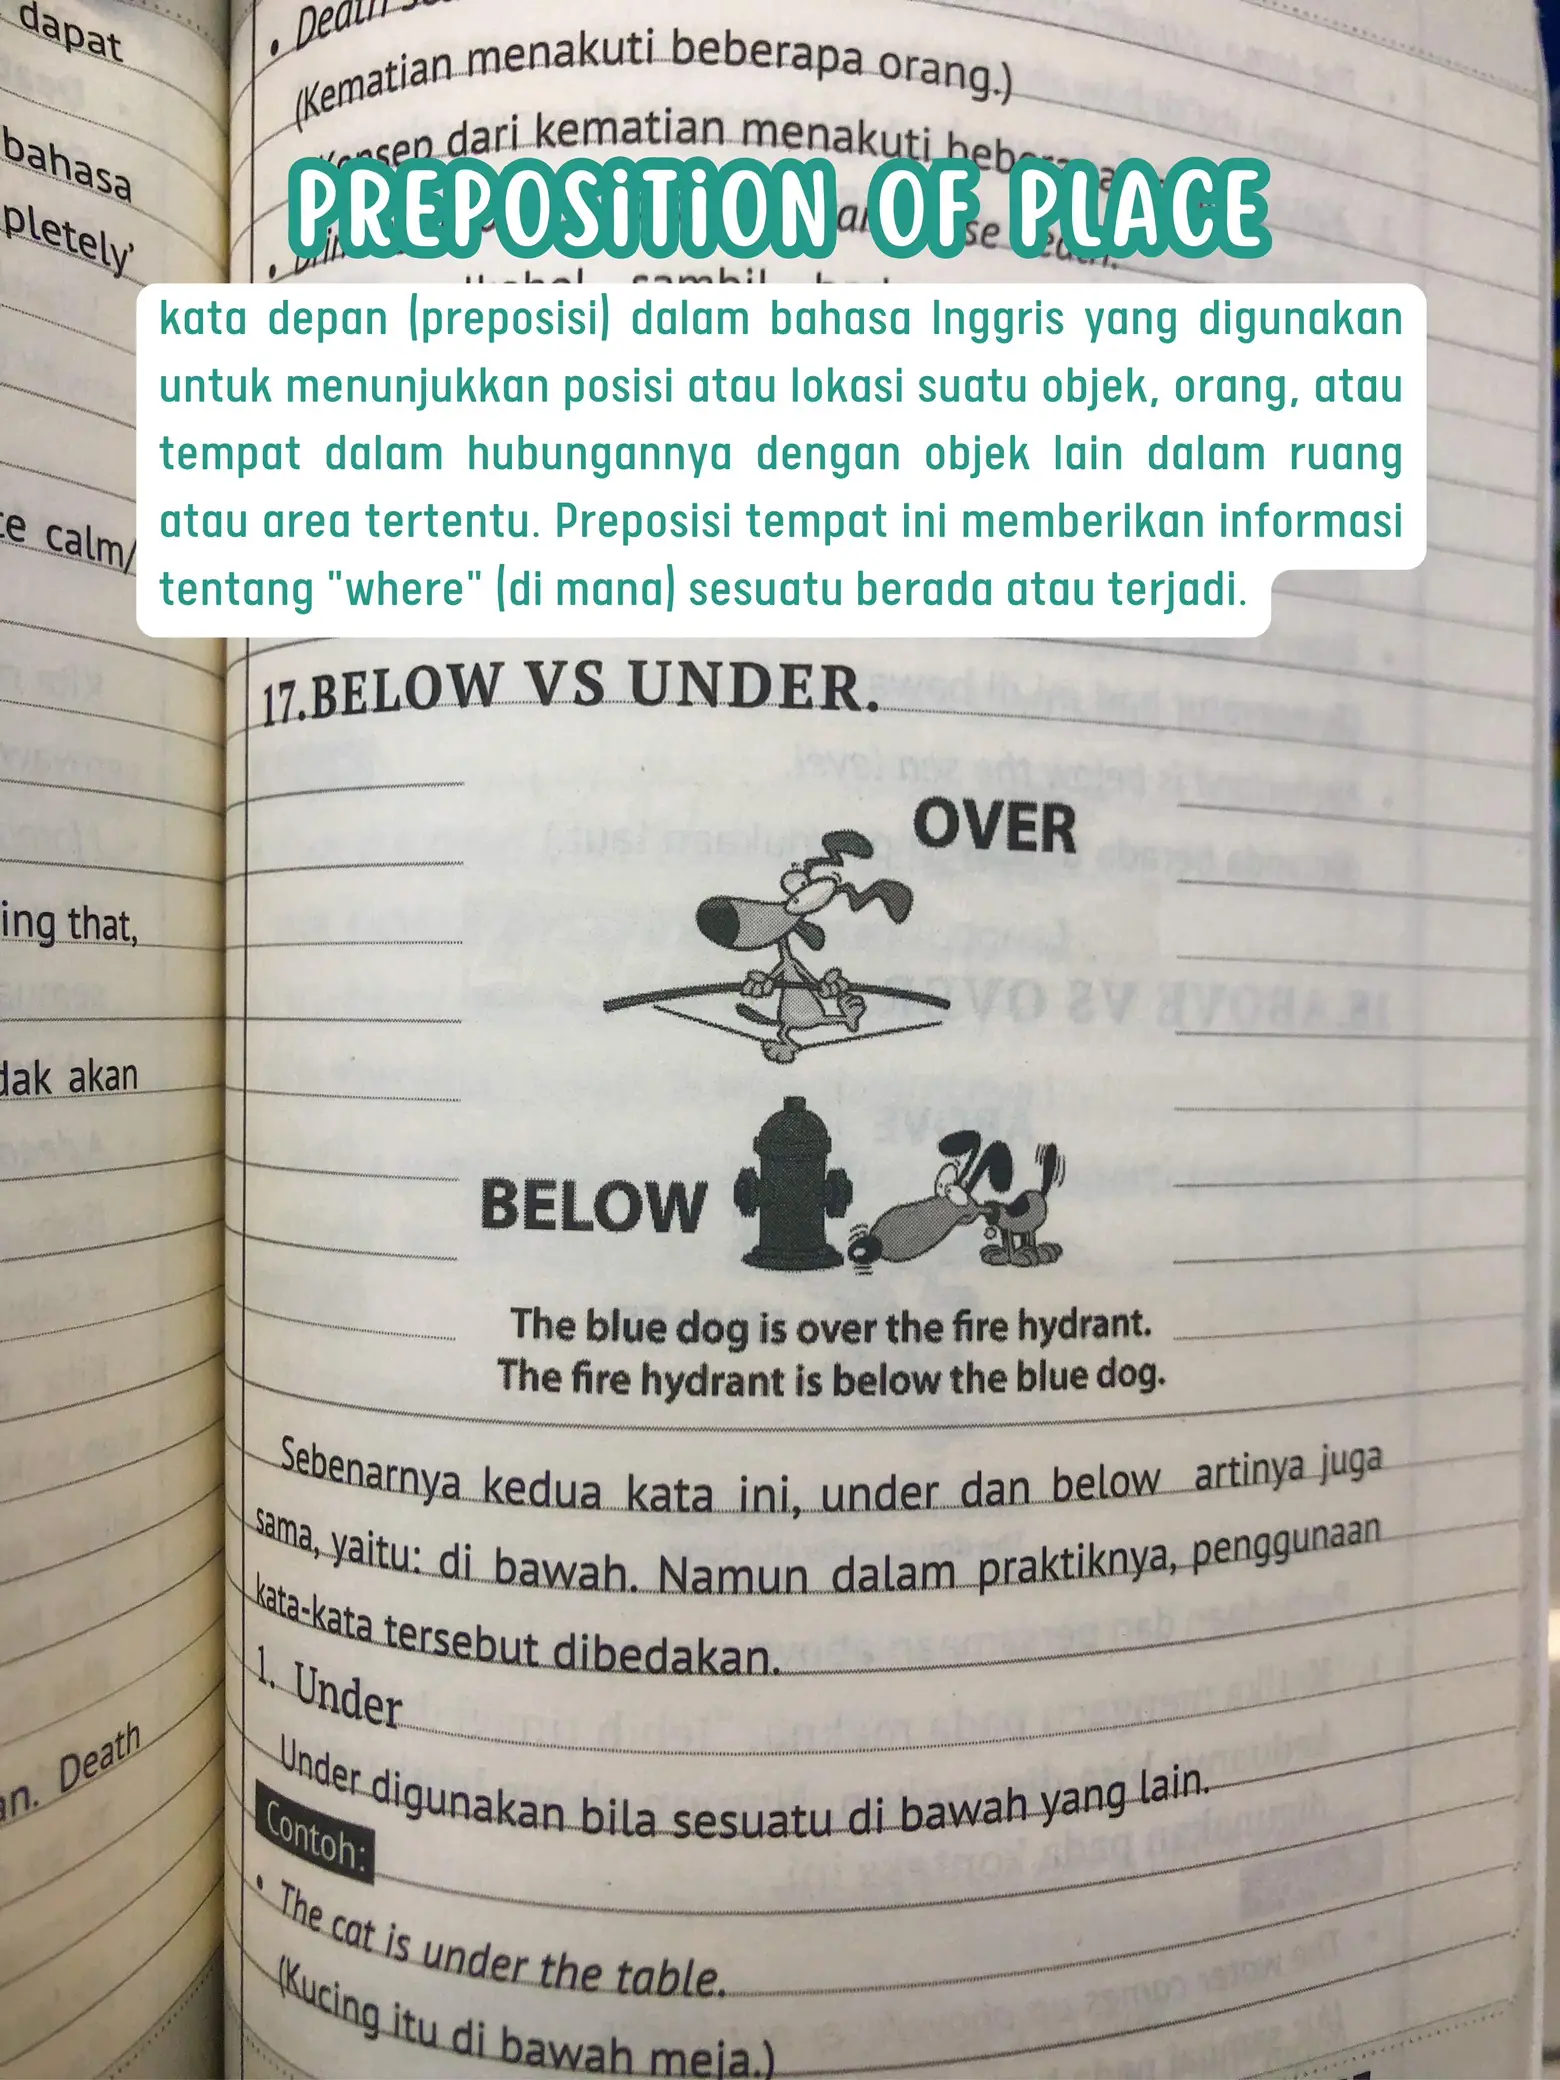 dapat
bahasa
pletely'
calm/
ing that,
akan
Death
(Kematian menakuti beberapa orang.)
dari kematian menakuti
PREPOSITION OF PLACE
kata depan (preposisi) dalam bahasa Inggris yang digunakan
untuk menunjukkan posisi atau lokasi suatu objek, orang, atau
tempat dalam hubungannya dengan objek lain dalam ruang
atau area tertentu. Preposisi tempat ini memberikan informasi
tentang "where" (di mana) sesuatu berada atau terjadi.
17.BELOW VS UNDER.
OVER
BELOW
The blue dog is over the fire hydrant.
The fire hydrant is below the blue dog.
Sebenarnya kedua kata ini, under dan below artinya juga
sama, yaitu: di bawah. Namun dalam praktiknya, penggunaan
kata-kata tersebut dibedakan.
1. Under
Under digunakan bila sesuatu di bawah yang lain.
Contoh:
• The cat is under the table.
(Kucing itu di bawah meja.)